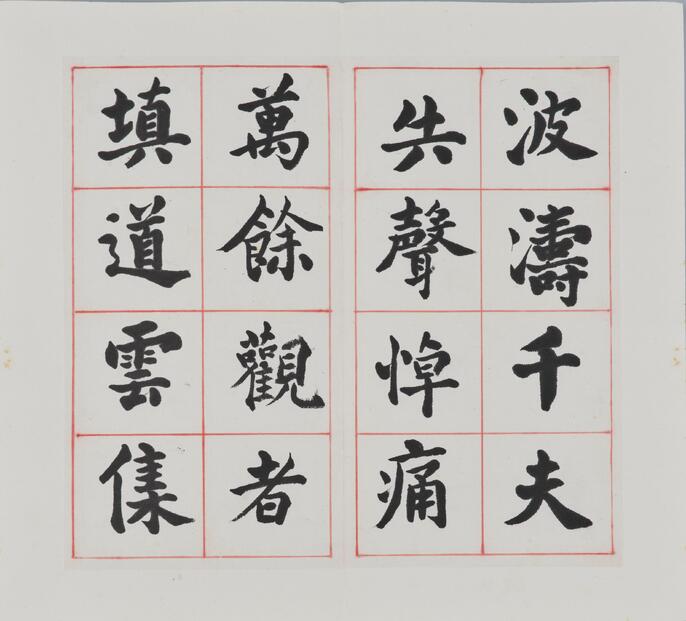 波濤千夫
失聲悼痛
萬餘觀者
填道雲集